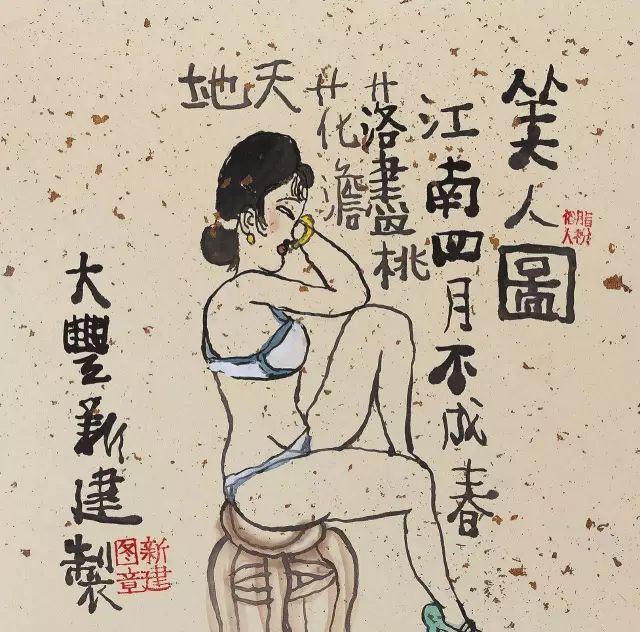 美人圖
江南四月不成春
落盡桃
花澹
天
地
大豐新建製
新建
图章